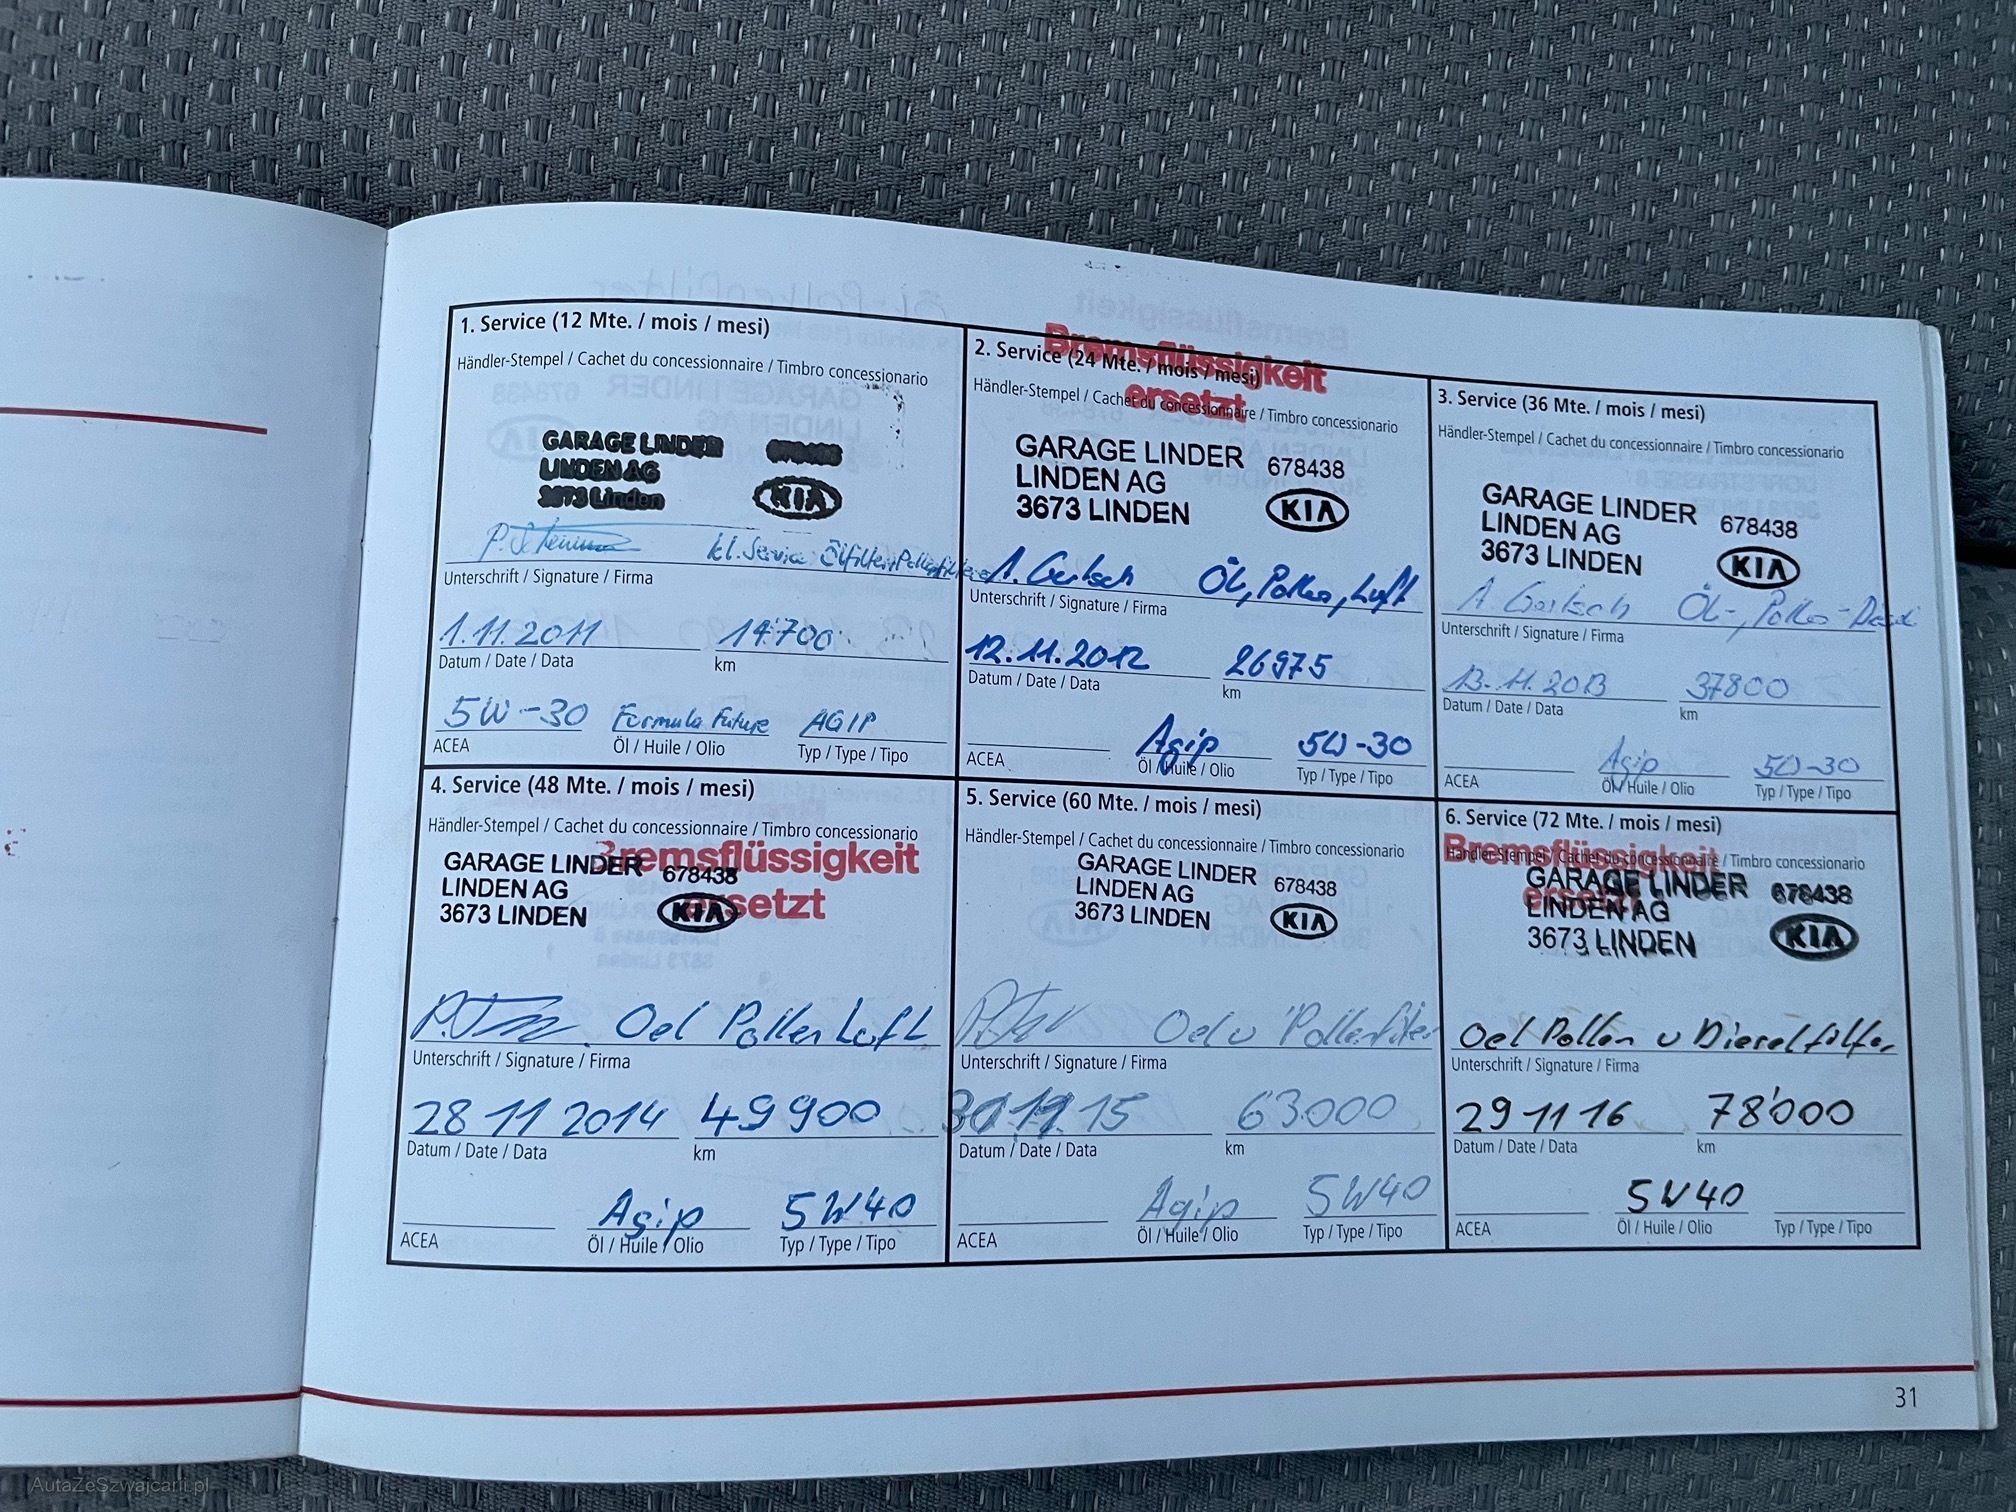 1. Service (12 Mte. / mois / mesi)
Händler-Stempel / Cachet du concessionnaire / Timbro concessionario
GARAGE LINDER 678438
LINDEN AG
3673 Linden KIA
kl. Service Ölfilter, Pollenfilter
Unterschrift / Signature / Firma
1.11.2011 14'700
Datum / Date / Data km
5W-30 Formula Future AGIP
ACEA Öl / Huile / Olio Typ / Type / Tipo
Bremsflüssigkeit
ersetzt
2. Service (24 Mte. / mois / mesi)
Händler-Stempel / Cachet du concessionnaire / Timbro concessionario
GARAGE LINDER 678438
LINDEN AG
3673 LINDEN KIA
A. Gertsch Öl, Pollen, Luft
Unterschrift / Signature / Firma
12.11.2012 26975
Datum / Date / Data km
Agip 5W-30
ACEA Öl / Huile / Olio Typ / Type / Tipo
3. Service (36 Mte. / mois / mesi)
Händler-Stempel / Cachet du concessionnaire / Timbro concessionario
GARAGE LINDER 678438
LINDEN AG
3673 LINDEN KIA
A. Gertsch Öl-, Pollen-
Unterschrift / Signature / Firma
13.11.2013 37800
Datum / Date / Data km
Agip 5W-30
ACEA Öl / Huile / Olio Typ / Type / Tipo
4. Service (48 Mte. / mois / mesi)
Händler-Stempel / Cachet du concessionnaire / Timbro concessionario
Bremsflüssigkeit
ersetzt
GARAGE LINDER 678438
LINDEN AG
3673 LINDEN KIA
Oel Pollen Luft
Unterschrift / Signature / Firma
28 11 2014 49900
Datum / Date / Data km
Agip 5W40
ACEA Öl / Huile / Olio Typ / Type / Tipo
5. Service (60 Mte. / mois / mesi)
Händler-Stempel / Cachet du concessionnaire / Timbro concessionario
GARAGE LINDER 678438
LINDEN AG
3673 LINDEN KIA
Oel u Pollenfilter
Unterschrift / Signature / Firma
30 11 15 63000
Datum / Date / Data km
Agip 5W40
ACEA Öl / Huile / Olio Typ / Type / Tipo
6. Service (72 Mte. / mois / mesi)
Bremsflüssigkeit
ersetzt
Händler-Stempel / Cachet du concessionnaire / Timbro concessionario
GARAGE LINDER 678438
LINDEN AG
3673 LINDEN KIA
Oel Pollen u Dieselfilter
Unterschrift / Signature / Firma
29 11 16 78'000
Datum / Date / Data km
5W40
ACEA Öl / Huile / Olio Typ / Type / Tipo
31
AutaZeSzwajcarii.pl